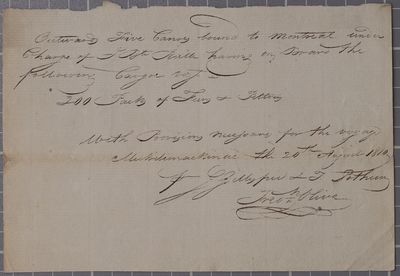 Outward Five Canoes bound to Montreal under
Charge of J. Bt. having on Board the
following Cargoe viz
200 Packs of Furs & Peltries
With Provisions necessary for the voyage
Michilimackinac the 20th August 1810
Gillespie & T. Pothier
Olive